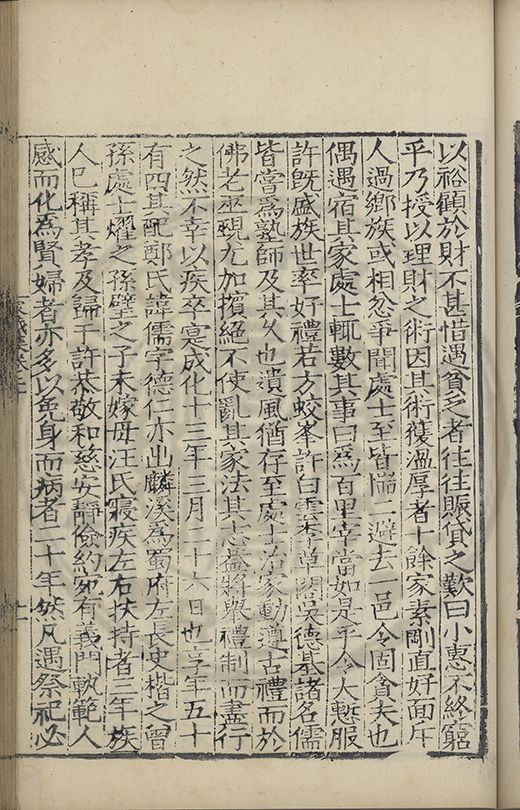 以裕顧於財不甚惜遇貧乏者往往賑貸之歎曰小惠不終窮
乎乃授以理財之術因其術獲溫厚者十餘家素剛直好面斥
人過鄉族或相忿爭聞處士至皆惱二避去一邑令固貪夫也
偶遇宿其家處士輒數其事曰為百里宰當如是乎令大慙服
許旣盛族世率好禮若方蛟峯許白雲李草閣吳德基諸名儒
皆嘗為塾師及其久也遺風猶存至處士治家動遵古禮而於
佛老巫覡尤加擯絕不使亂其家法其志蓋將舉禮制而盡行
之然不幸以疾卒寔成化十三年三月二十六日也享年五十
有四其配鄭氏諱儒字德仁亦出麟溪為蜀府左長史楷之曾
孫處士燿之孫壁之子未嫁母汪氏寢疾左右扶持者三年族
人已稱其孝及歸于許恭敬和慈安靜儉約宛有義門軌範人
感而化為賢婦者亦多以免身而病者二十年然凡遇祭祀必